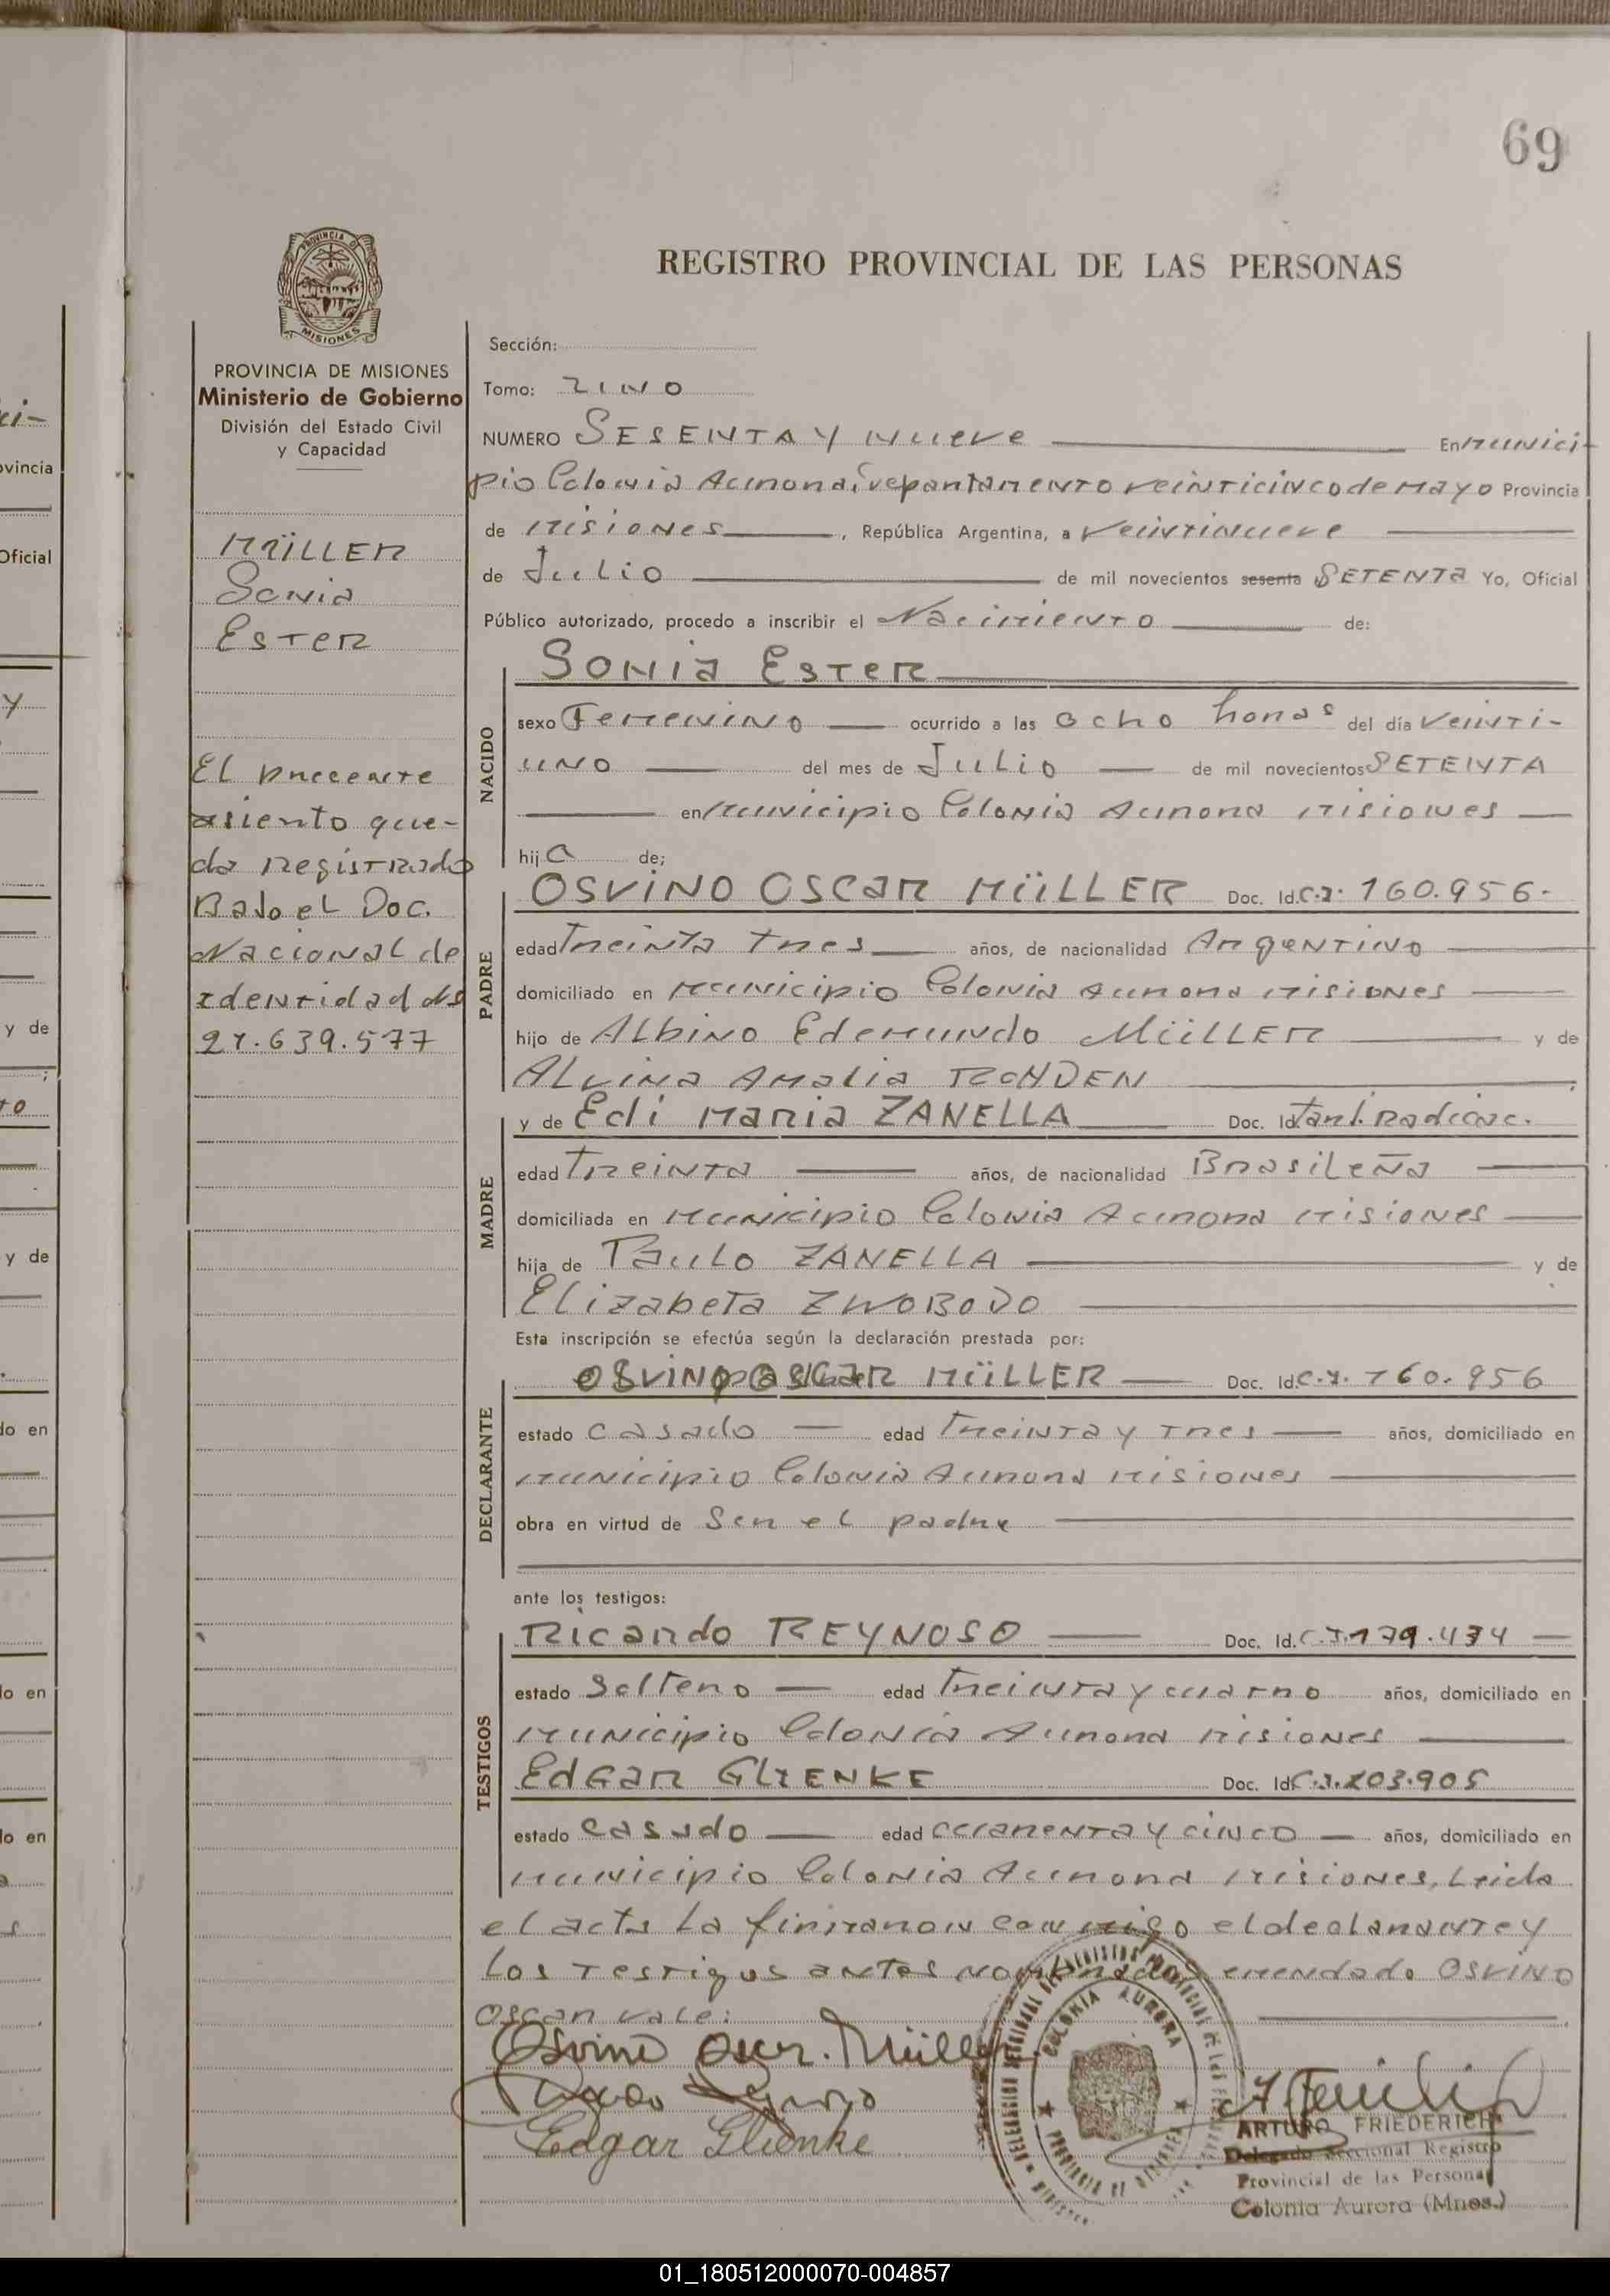 69
PROVINCIA DE
MISIONES
REGISTRO PROVINCIAL DE LAS PERSONAS
PROVINCIA DE MISIONES
Ministerio de Gobierno
División del Estado Civil
y Capacidad
MÜLLER
Sonia
Ester
El presente
asiento que-
da registrado
Bajo el Doc.
Nacional de
identidad
21.639.577
Sección:
Tomo: UNO
NUMERO SESENTA Y Nueve En munici-
pio Colonia Aurora, Departamento veinticinco de mayo Provincia
de Misiones, República Argentina, a veintinueve
de Julio de mil novecientos sesenta SETENTA Yo, Oficial
Público autorizado, procedo a inscribir el Nacimiento de:
NACIDO
Sonia Ester
sexo Femenino ocurrido a las ocho horas del día veinti-
uno del mes de Julio de mil novecientos SETENTA
en Municipio Colonia Aurora Misiones
hija de;
PADRE
OSVINO OSCAR MÜLLER Doc. Id. C.I. 160.956-
edad treinta tres años, de nacionalidad Argentino
domiciliado en municipio Colonia Aurora Misiones
hijo de Albino Edemundo MÜLLER y de
Alvina Amalia ROHDEN ;
MADRE
y de Edi Maria ZANELLA Doc. Id. Tarj. Radicac.
edad Treinta años, de nacionalidad Brasileña
domiciliada en Municipio Colonia Aurora Misiones
hija de Paulo ZANELLA y de
Elizabeta ZWOBODO
Esta inscripción se efectúa según la declaración prestada por:
DECLARANTE
OSVINO OSCAR MÜLLER Doc. Id. C.I. 160.956
estado casado edad treinta y tres años, domiciliado en
municipio Colonia Aurora Misiones
obra en virtud de ser el padre
ante los testigos:
TESTIGOS
Ricardo REYNOSO Doc. Id. C.I. 179.434
estado Soltero edad treinta y cuatro años, domiciliado en
municipio Colonia Aurora Misiones
Edgar GLIENKE Doc. Id. C.I. 203.905
estado casado edad cuarenta y cinco años, domiciliado en
municipio Colonia Aurora Misiones, Leida
el acta la firmaron conmigo el declarante y
los testigos antes nombrados enmendado OSVINO
OSCAR vale:
Osvino Oscar. Müller
Edgar Glienke
COLONIA AURORA
PROVINCIA DE MISIONES
ARTURO FRIEDERICH
Delegado Seccional Registro
Provincial de las Personas
Colonia Aurora (Mnes.)
ci-
ovincia
Oficial
y
y de
;
to
y de
do en
do en
do en
01_180512000070-004857